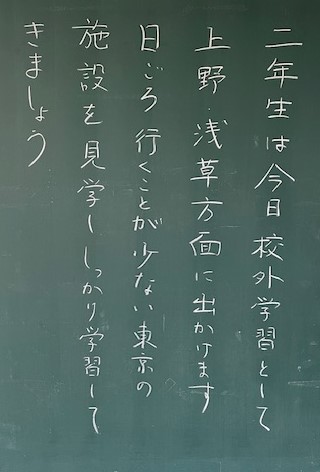 二年生は今日校外学習として
上野・浅草方面に出かけます
日ごろ行くことが少ない東京の
施設を見学ししっかり学習して
きましょう